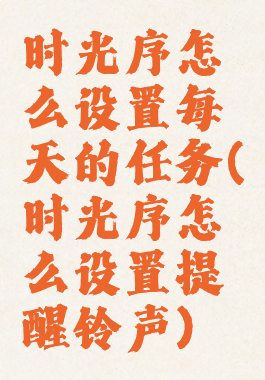 时光序怎
么设置每
天的任务(
时光序怎
么设置提
醒铃声)